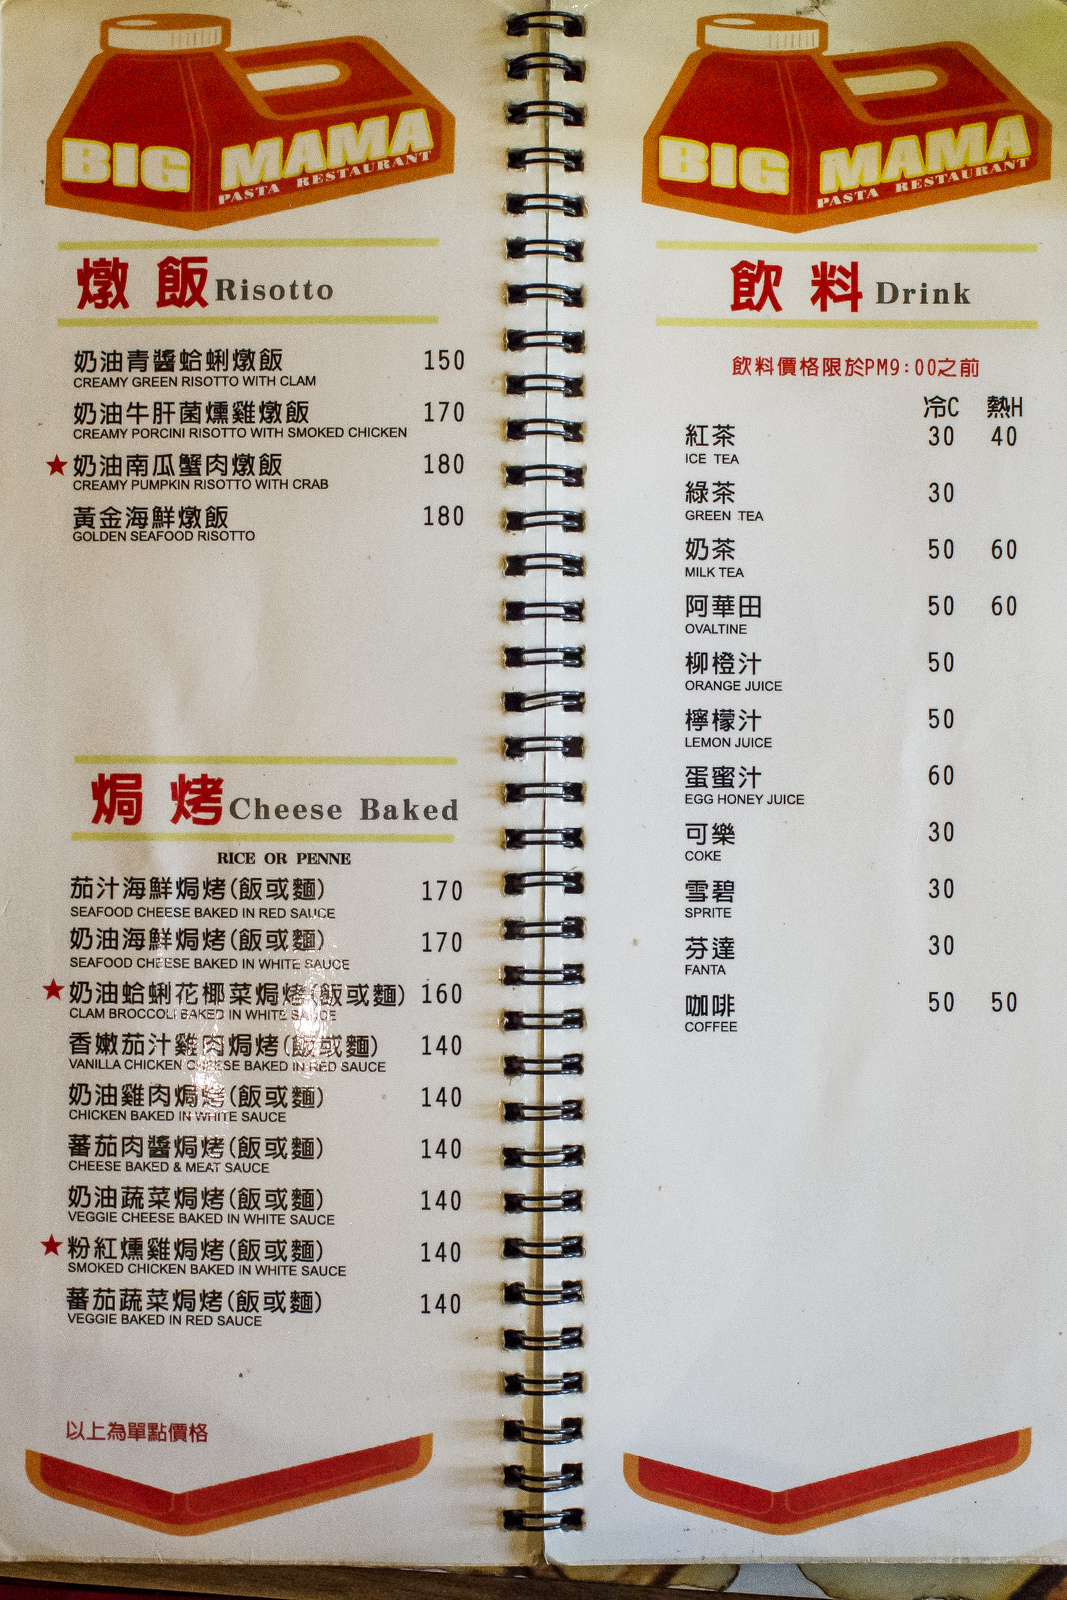 BIG MAMA
PASTA RESTAURANT
燉飯 Risotto
奶油青醬蛤蜊燉飯 150
CREAMY GREEN RISOTTO WITH CLAM
奶油牛肝菌燻雞燉飯 170
CREAMY PORCINI RISOTTO WITH SMOKED CHICKEN
★奶油南瓜蟹肉燉飯 180
CREAMY PUMPKIN RISOTTO WITH CRAB
黃金海鮮燉飯 180
GOLDEN SEAFOOD RISOTTO
焗烤 Cheese Baked
RICE OR PENNE
茄汁海鮮焗烤(飯或麵) 170
SEAFOOD CHEESE BAKED IN RED SAUCE
奶油海鮮焗烤(飯或麵) 170
SEAFOOD CHEESE BAKED IN WHITE SAUCE
★奶油蛤蜊花椰菜焗烤(飯或麵) 160
CLAM BROCCOLI BAKED IN WHITE SAUCE
香嫩茄汁雞肉焗烤(飯或麵) 140
VANILLA CHICKEN CHEESE BAKED IN RED SAUCE
奶油雞肉焗烤(飯或麵) 140
CHICKEN BAKED IN WHITE SAUCE
蕃茄肉醬焗烤(飯或麵) 140
CHEESE BAKED & MEAT SAUCE
奶油蔬菜焗烤(飯或麵) 140
VEGGIE CHEESE BAKED IN WHITE SAUCE
★粉紅燻雞焗烤(飯或麵) 140
SMOKED CHICKEN BAKED IN WHITE SAUCE
蕃茄蔬菜焗烤(飯或麵) 140
VEGGIE BAKED IN RED SAUCE
以上為單點價格
BIG MAMA
PASTA RESTAURANT
飲料 Drink
飲料價格限於PM9:00之前
冷C 熱H
紅茶 30 40
ICE TEA
綠茶 30
GREEN TEA
奶茶 50 60
MILK TEA
阿華田 50 60
OVALTINE
柳橙汁 50
ORANGE JUICE
檸檬汁 50
LEMON JUICE
蛋蜜汁 60
EGG HONEY JUICE
可樂 30
COKE
雪碧 30
SPRITE
芬達 30
FANTA
咖啡 50 50
COFFEE